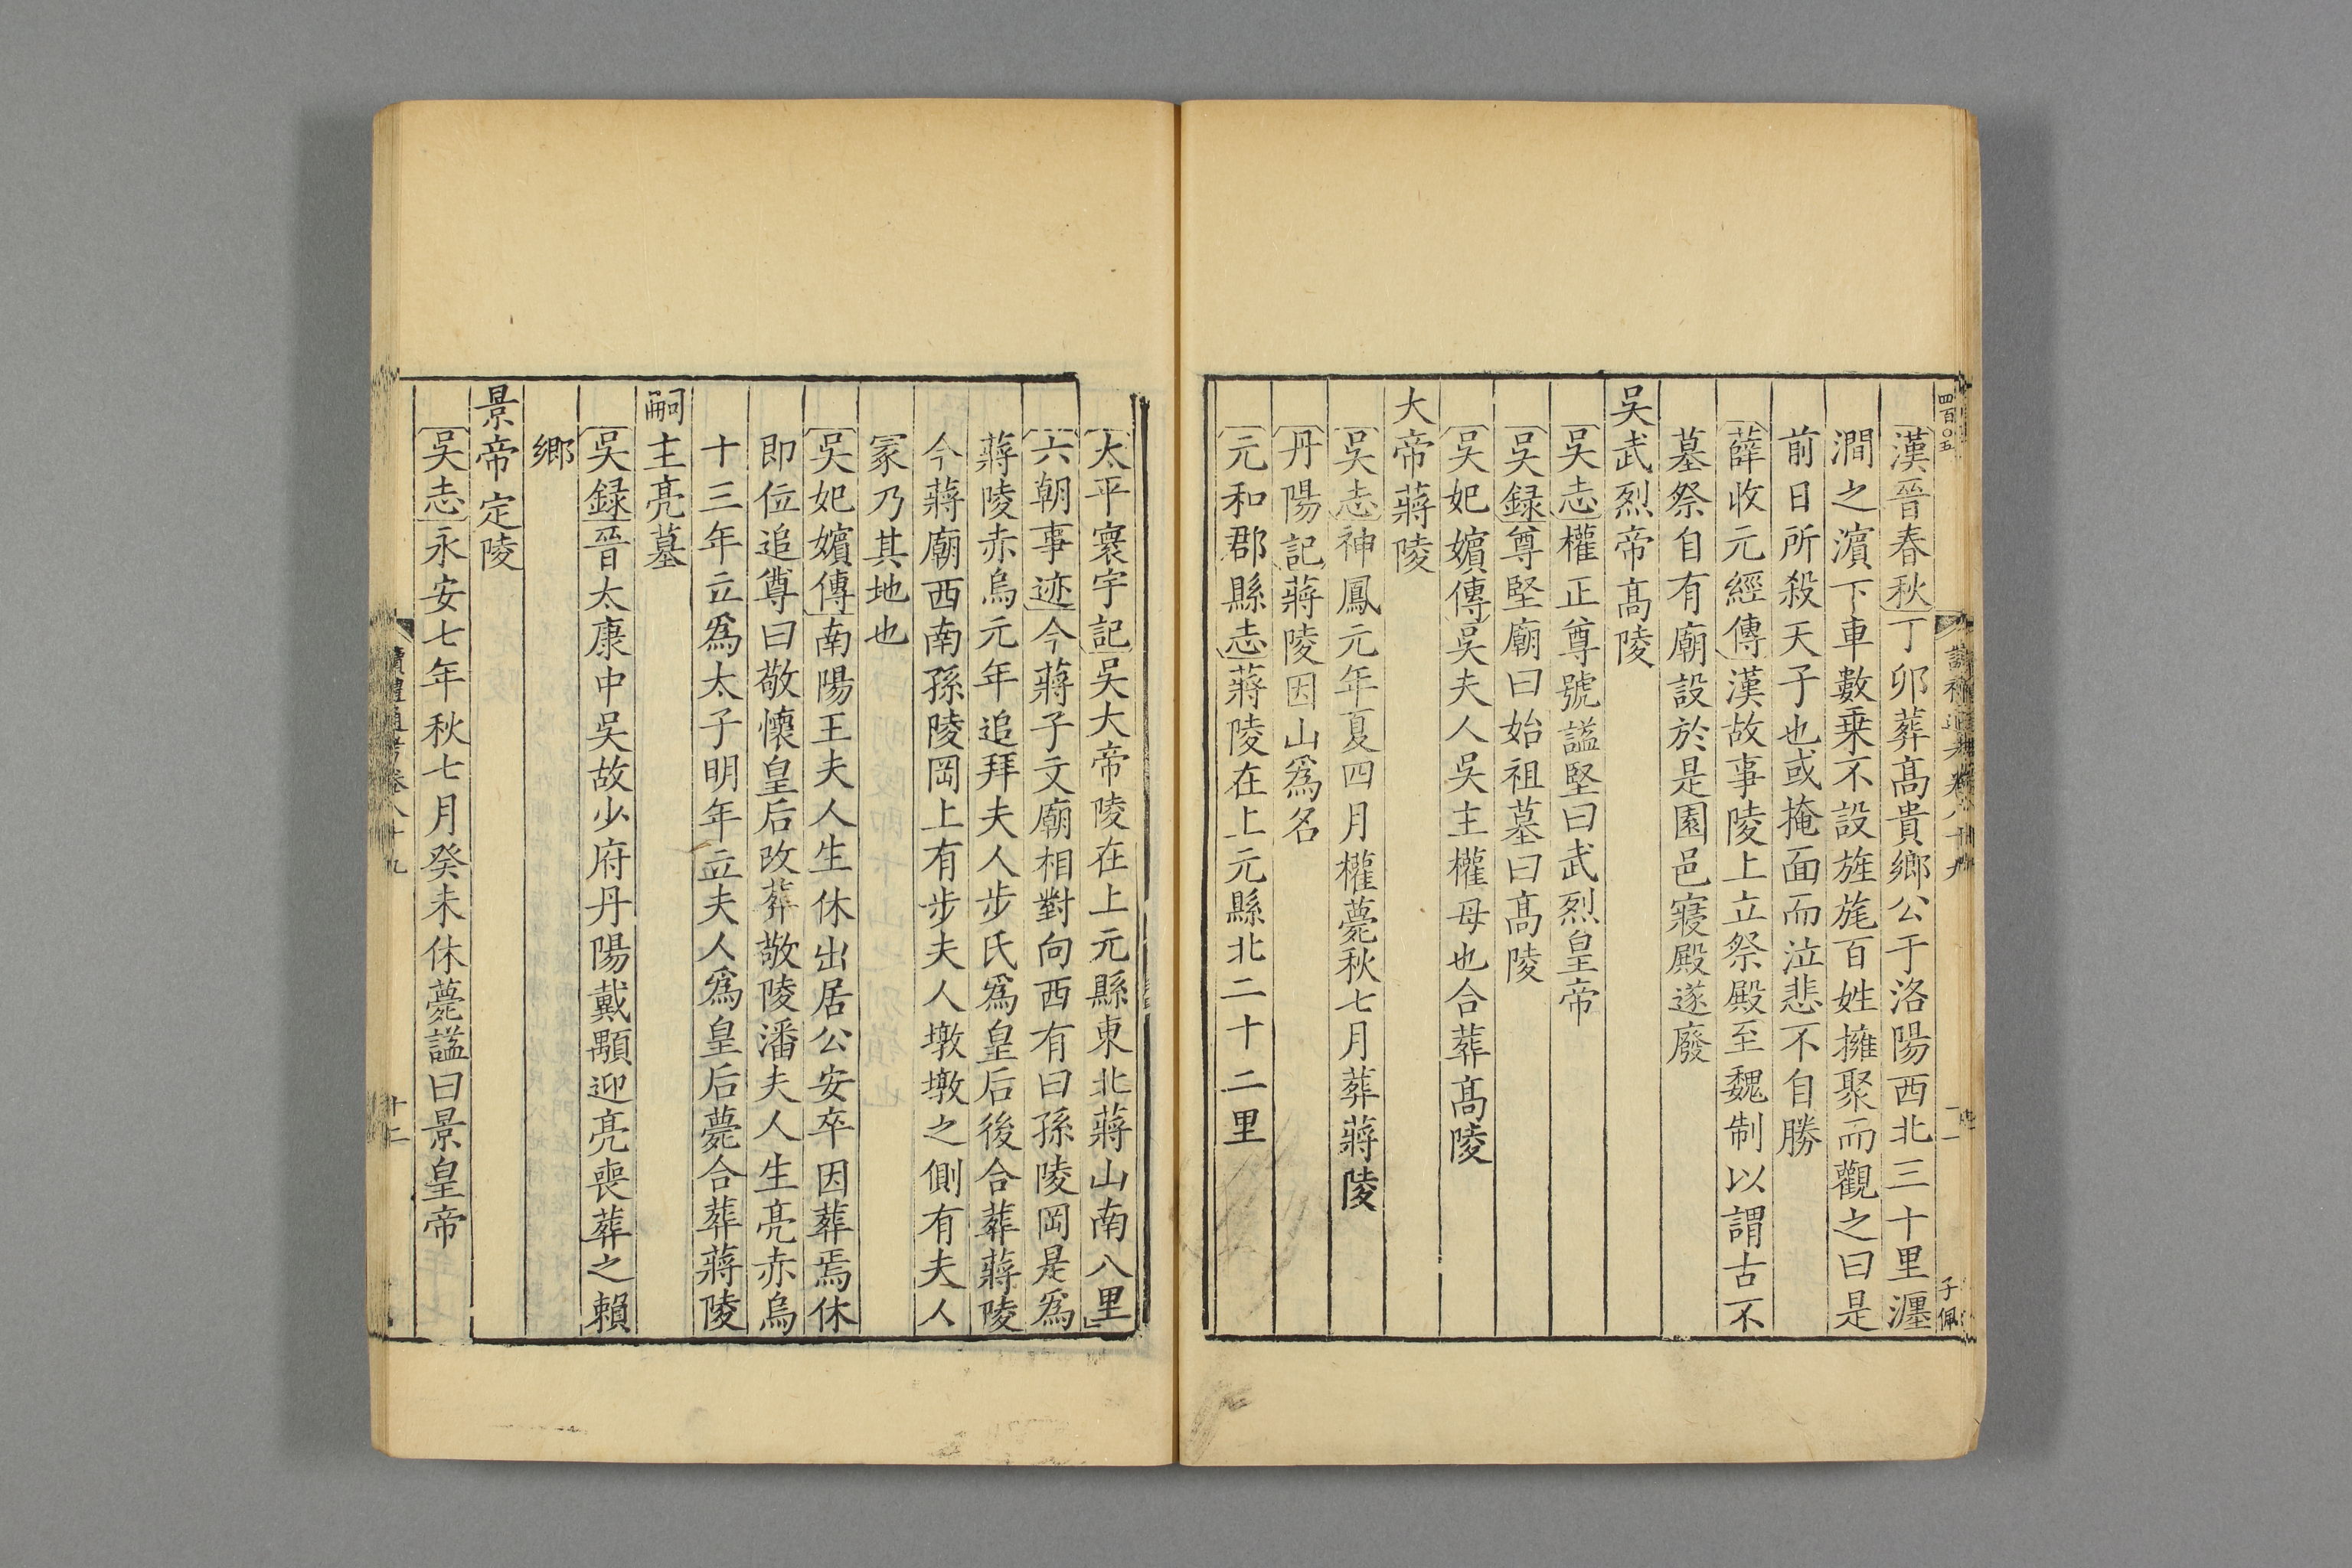 四百〇五
子佩
漢晉春秋丁卯葬髙貴鄉公于洛陽西北三十里瀍
澗之濵下車數乗不設旌旄百姓擁聚而觀之曰是
前日所殺天子也或掩面而泣悲不自勝
薛收元經傳漢故事陵上立祭殿至魏制以謂古不
墓祭自有廟設於是園邑寢殿遂廢
吳武烈帝髙陵
吳志權正尊號謚堅曰武烈皇帝
吳録尊堅廟曰始祖墓曰髙陵
吳妃嬪傳吳夫人吳主權母也合葬髙陵
大帝蔣陵
吳志神鳳元年夏四月權薨秋七月葬蔣陵
丹陽記蔣陵因山爲名
元和郡縣志蔣陵在上元縣北二十二里
太平寰宇記吳大帝陵在上元縣東北蔣山南八里
六朝事迹今蔣子文廟相對向西有曰孫陵岡是爲
蔣陵赤烏元年追拜夫人步氏爲皇后後合葬蔣陵
今蔣廟西南孫陵岡上有步夫人墩墩之側有夫人
冢乃其地也
吳妃嬪傳南陽王夫人生休出居公安卒因葬焉休
即位追尊曰敬懷皇后改葬敬陵潘夫人生亮赤烏
十三年立爲太子明年立夫人爲皇后薨合葬蔣陵
嗣主亮墓
吳録晉太康中吳故少府丹陽戴顒迎亮喪葬之賴
鄉
景帝定陵
吳志永安七年秋七月癸未休薨謚曰景皇帝
讀禮通考卷八十九
十二